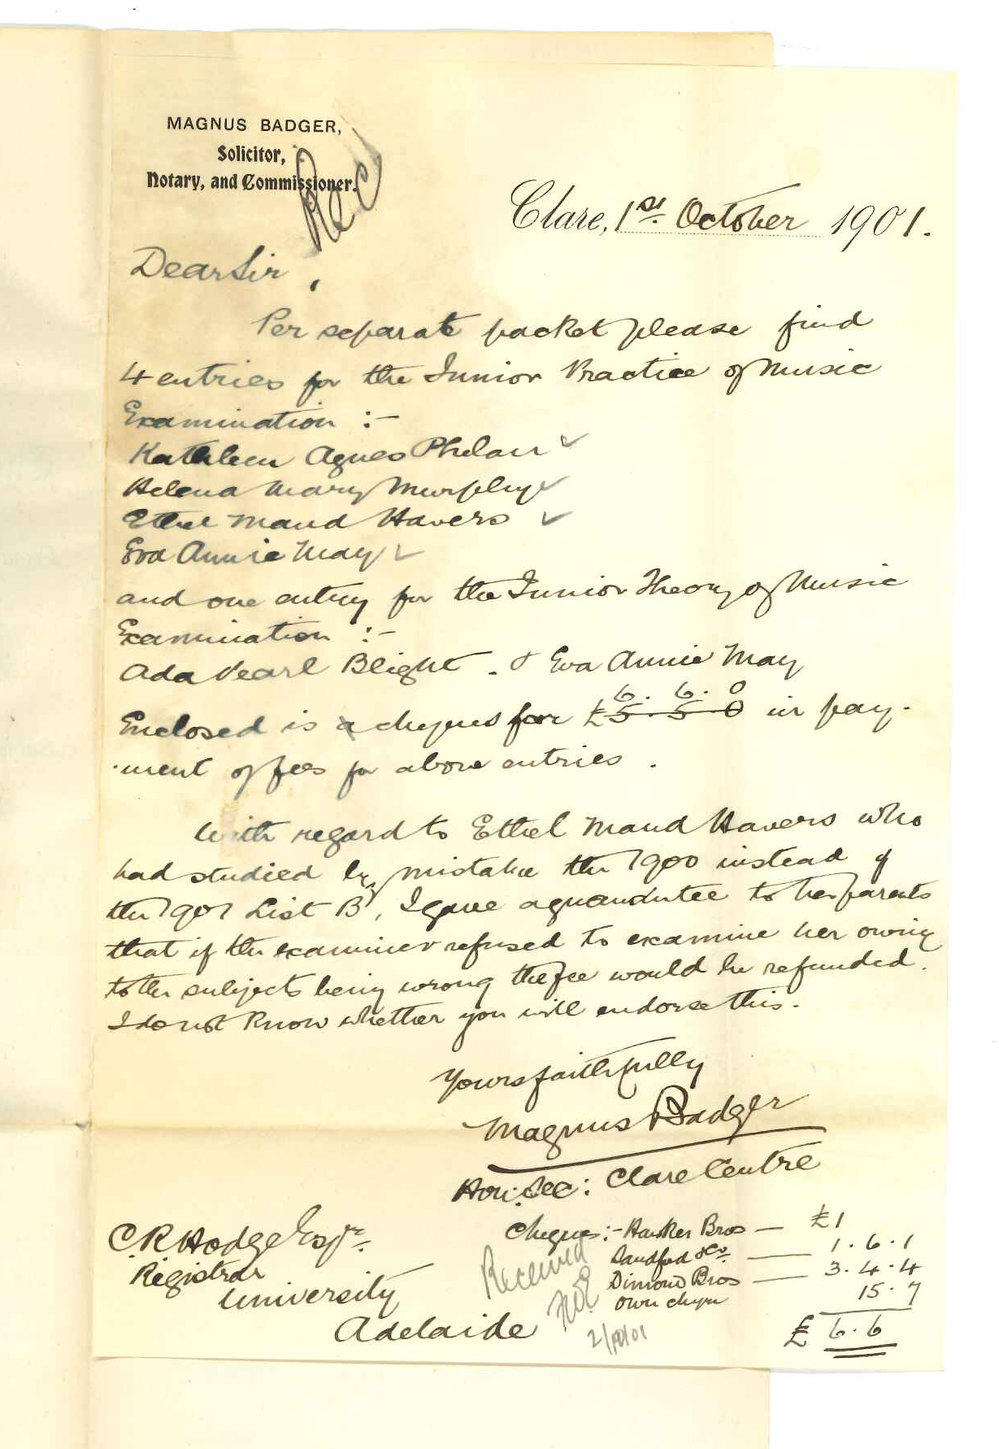 MAGNUS BADGER,
Solicitor,
Notary, and Commissioner.
Rec
Clare, 1st. October 1901.
Dear Sir,
Per separate packet please find
4 entries for the Junior Practice of Music
Examination :-
Kathleen Agnes Phelan ✓
Helena Mary Murphy ✓
Ethel Maud Havers ✓
Eva Annie May ✓
and one entry for the Junior Theory of Music
Examination :-
Ada Pearl Blight . & Eva Annie May
6. 6. 0
Enclosed is a cheques for £5.5.0 in pay-
-ment of fees for above entries .
With regard to Ethel Maud Havers who
had studied by mistake the 1900 instead of
the 1901 List B, I gave a guarantee to her parents
that if the examiner refused to examine her owing
to the subjects being wrong the fee would be refunded.
I do not know whether you will endorse this.
Yours faithfully
Magnus Badger
Hon: Sec: Clare Centre
C.R. Hodge Esqre.
Registrar
University
Adelaide
Cheques:- Hawker Bros — £1
Sandford & Co — 1.6.1
Dimond Bros — 3.4.4
Own cheque 15.7
£ 6.6
Received
2/10/01